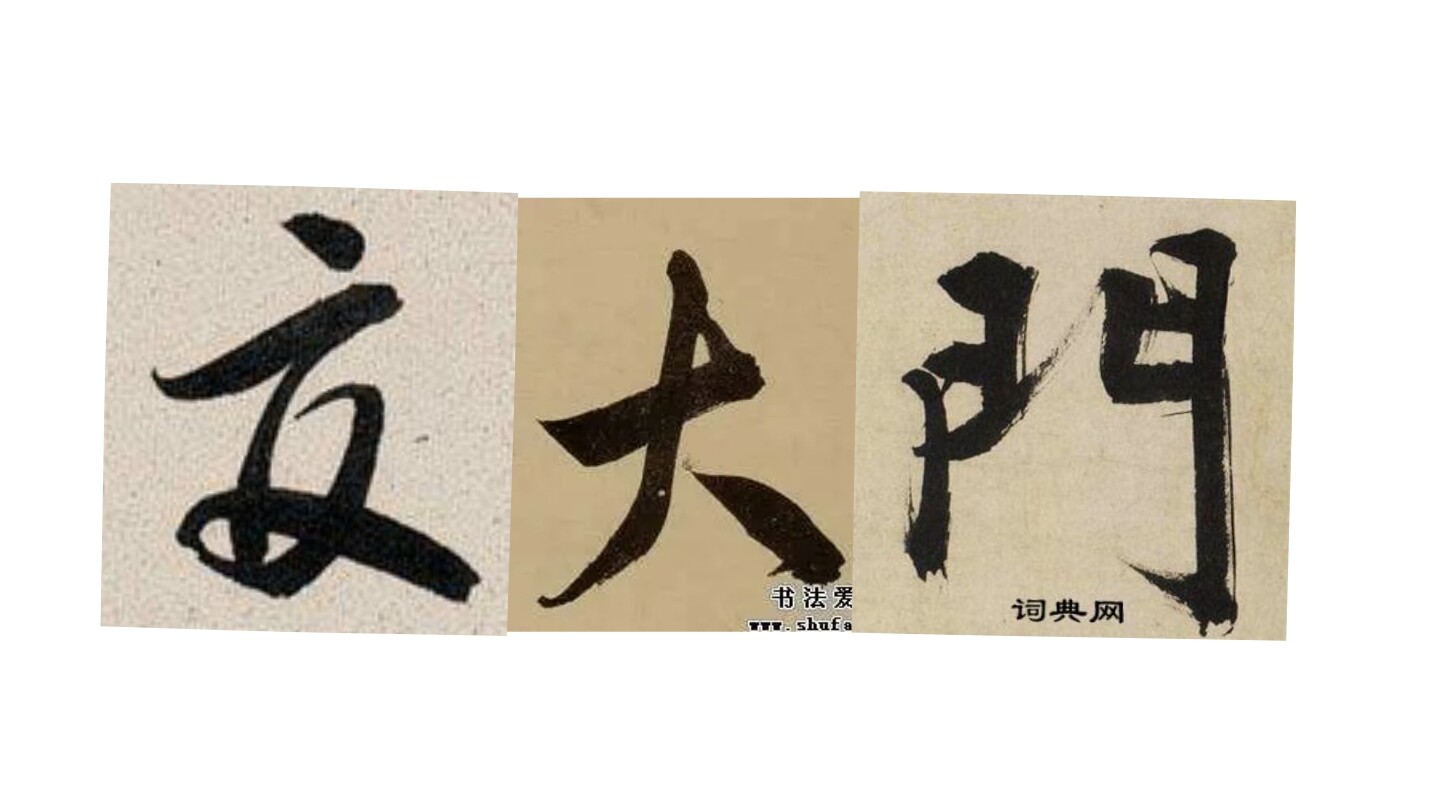 交大門
书法爱
www.shufa
词典网